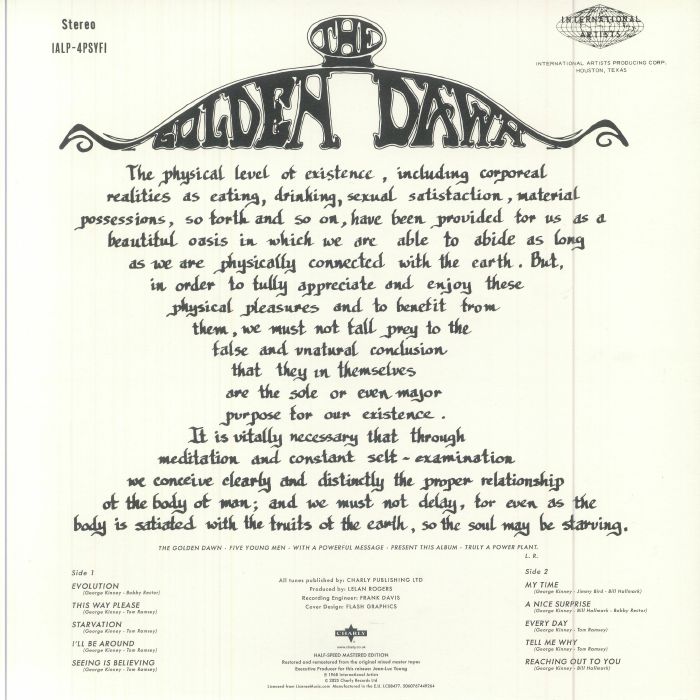 Stereo
IALP-4PSYFI
THE
GOLDEN DAWN
INTERNATIONAL
ARTISTS
INTERNATIONAL ARTISTS PRODUCING CORP.
HOUSTON, TEXAS
The physical level of existence, including corporeal
realities as eating, drinking, sexual satisfaction, material
possessions, so forth and so on, have been provided for us as a
beautiful oasis in which we are able to abide as long
as we are physically connected with the earth. But,
in order to fully appreciate and enjoy these
physical pleasures and to benefit from
them, we must not fall prey to the
false and vnatural conclusion
that they in themselves
are the sole or even major
purpose for our existence.
It is vitally necessary that through
meditation and constant self-examination
we conceive clearly and distinctly the proper relationship
of the body of man; and we must not delay, for even as the
body is satiated with the fruits of the earth, so the soul may be starving.
THE GOLDEN DAWN - FIVE YOUNG MEN - WITH A POWERFUL MESSAGE - PRESENT THIS ALBUM - TRULY A POWER PLANT.
L. R.
Side 1
EVOLUTION
(George Kinney - Bobby Rector)
THIS WAY PLEASE
(George Kinney - Tom Ramsey)
STARVATION
(George Kinney - Tom Ramsey)
I'LL BE AROUND
(George Kinney - Tom Ramsey)
SEEING IS BELIEVING
(George Kinney - Tom Ramsey)
All tunes published by: CHARLY PUBLISHING LTD
Produced by: LELAN ROGERS
Recording Engineer: FRANK DAVIS
Cover Design: FLASH GRAPHICS
CHARLY
www.charly.co.uk
HALF-SPEED MASTERED EDITION
Restored and remastered from the original mixed master tapes
Executive Producer for this reissue Jean-Luc Young
℗ 1968 International Artists
© 2025 Charly Records Ltd
Licensed from LicenseMusic.com Manufactured in the E.U. LC08477. 5060767449264
Side 2
MY TIME
(George Kinney - Jimmy Bird - Bill Hallmark)
A NICE SURPRISE
(George Kinney - Bill Hallmark - Bobby Rector)
EVERY DAY
(George Kinney - Tom Ramsey)
TELL ME WHY
(George Kinney - Tom Ramsey)
REACHING OUT TO YOU
(George Kinney - Bill Hallmark)